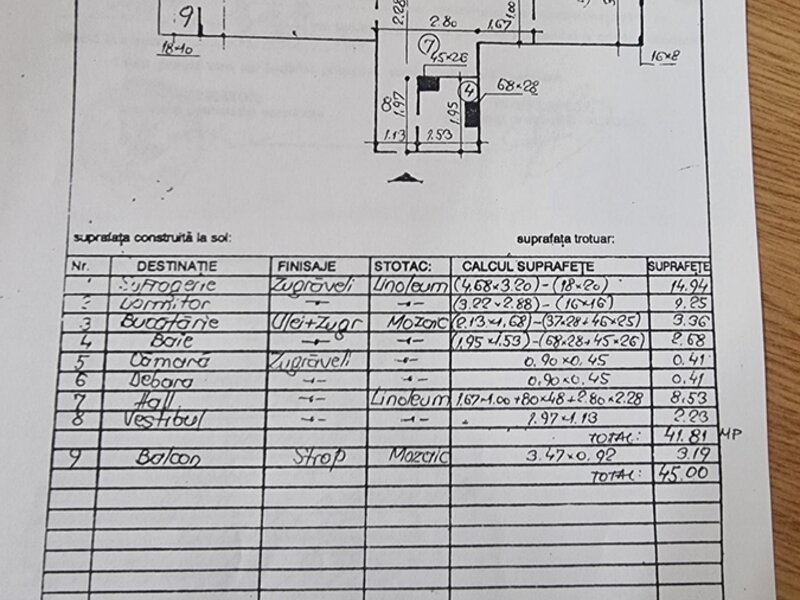 9
18×10
2.28
2.80
1.67
1.00
7
45×26
16×8
4
68×28
8
1.97
1.95
1.13
1.53
suprafața construită la sol:
suprafața trotuar:
Nr. DESTINAȚIE FINISAJE STOTAC: CALCUL SUPRAFEȚE SUPRAFEȚE
Sufrogerie Zugrăveli Linoleum (4.68×3.20)-(18×20) 14.94
2 Dormitor -"- -"- (3.22×2.88)-(16×16) 9.25
3 Bucătărie Ulei+Zugr Mozaic (2.13×1.68)-(37×28+46×25) 3.36
4 Baie -"- -"- (1.95×1.53)-(68×28+45×26) 2.68
5 Cămară Zugrăveli -"- 0.90×0.45 0.41
6 Debara -"- -"- 0.90×0.45 0.41
7 Hall -"- Linoleum 1.67×1.00+80×48+2.80×2.28 8.53
8 Vestibul -"- -"- 1.97×1.13 2.23
TOTAL: 41.81 MP
9 Balcon Strop Mozaic 3.47×0.92 3.19
TOTAL: 45.00